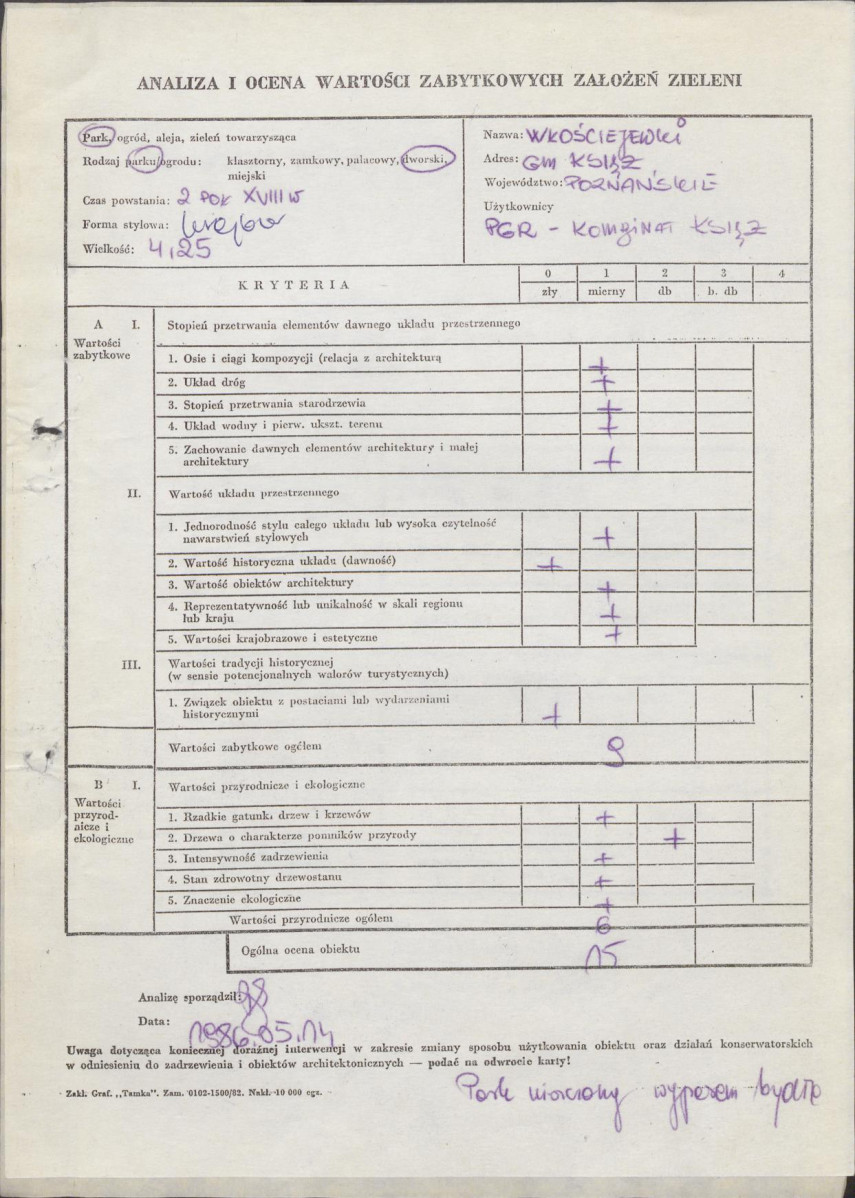 ANALIZA I OCENA WARTOŚCI ZABYTKOWYCH ZAŁOŻEŃ ZIELENI
Park, ogród, aleja, zieleń towarzysząca
Rodzaj parku/ogrodu: klasztorny, zamkowy, pałacowy, dworski,
miejski
Czas powstania: 2 POŁ XVIII W
Forma stylowa:
Wielkość: 4,25
Nazwa: WŁOŚCIEJEWKI
Adres: GM KSIĄŻ
Województwo: POZNAŃSKIE
Użytkownicy
PGR - KOMBINAT KSIĄŻ
KRYTERIA
0 1 2 3 4
zły mierny db b. db
A I. Stopień przetrwania elementów dawnego układu przestrzennego
Wartości
zabytkowe
1. Osie i ciągi kompozycji (relacja z architekturą +
2. Układ dróg +
3. Stopień przetrwania starodrzewia +
4. Układ wodny i pierw. ukszt. terenu +
5. Zachowanie dawnych elementów architektury i małej
architektury +
II. Wartość układu przestrzennego
1. Jednorodność stylu całego układu lub wysoka czytelność
nawarstwień stylowych +
2. Wartość historyczna układu (dawność) +
3. Wartość obiektów architektury +
4. Reprezentatywność lub unikalność w skali regionu
lub kraju +
5. Wartości krajobrazowe i estetyczne +
III. Wartości tradycji historycznej
(w sensie potencjonalnych walorów turystycznych)
1. Związek obiektu z postaciami lub wydarzeniami
historycznymi +
Wartości zabytkowe ogółem 9
B I. Wartości przyrodnicze i ekologiczne
Wartości
przyrod-
nicze i
ekologiczne
1. Rzadkie gatunki drzew i krzewów +
2. Drzewa o charakterze pomników przyrody +
3. Intensywność zadrzewienia +
4. Stan zdrowotny drzewostanu +
5. Znaczenie ekologiczne +
Wartości przyrodnicze ogółem 6
Ogólna ocena obiektu 15
Analizę sporządził:
Data: 1986.05.14
Uwaga dotycząca koniecznej doraźnej interwencji w zakresie zmiany sposobu użytkowania obiektu oraz działań konserwatorskich
w odniesieniu do zadrzewienia i obiektów architektonicznych — podać na odwrocie karty!
Zakł. Graf. „Tamka". Zam. 0102-1500/82. Nakł. 10 000 egz.
Park niszczony wypasem bydła